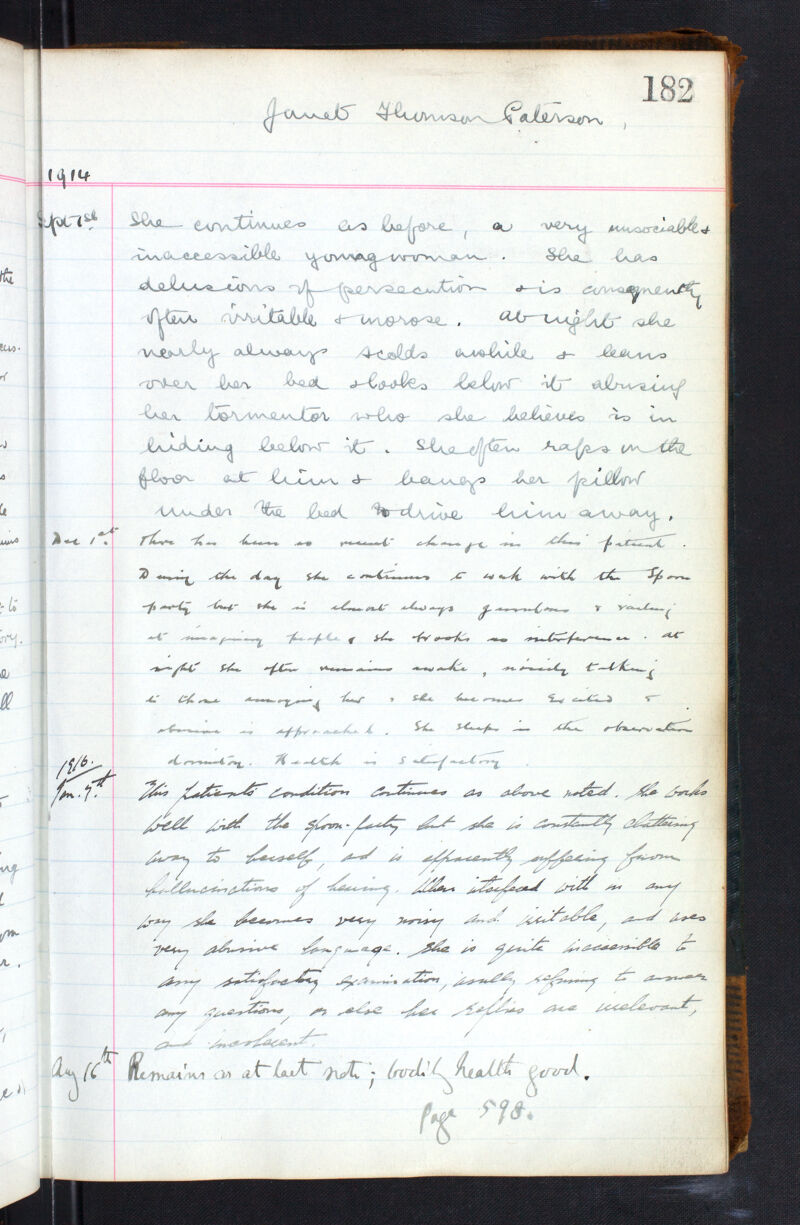 182
Janet Thomson Paterson,
1914
Sept 1st She continues as before, a very unsociable &
inaccessible young woman. She has
delusions of persecution & is consequently
often irritable & morose. At night she
nearly always scolds awhile & leans
over her bed & looks below it abusing
her tormentor who she believes is in
hiding below it. She often raps on the
floor at him & bangs her pillow
under the bed to drive him away.
Dec 1st. There has been no recent change in this patient.
During the day she continues to work with the Spoon
party but she is almost always querulous & railing
at imaginary people, she brooks no interference. At
night she often remains awake, noisily talking
to those annoying her & she becomes excited &
abusive if approached. She sleeps in the observation
dormitory. Health is satisfactory.
1916.
Jan. 7th. This patients condition continues as above noted. She works
well with the spoon-party but she is constantly chattering
away to herself, and is apparently suffering from
hallucinations of hearing. When interfered with in any
way she becomes very noisy and irritable, and uses
very abusive language. She is quite inaccessible to
any satisfactory examination, usually refusing to answer
any questions, or else her replies are irrelevant,
and incoherent.
Aug 16th Remains as at last note; bodily health good.
Page 598.